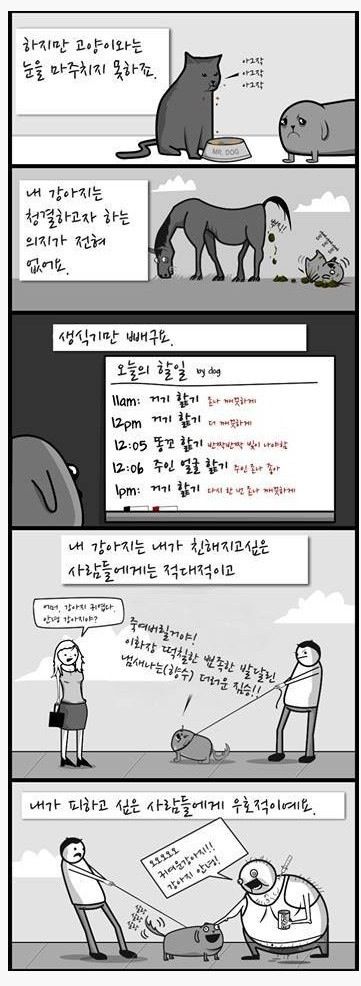 하지만 고양이와는
눈을 마주치지 못하죠.
아그작
아그작
아그작
MR. DOG
내 강아지는
청결하고자 하는
의지가 전혀
없어요.
생식기만 빼구요.
오늘의 할일 by dog
11am: 거기 핥기 존나 깨끗하게
12pm 거기 핥기 더 깨끗하게
12:05 똥꼬 핥기 반짝반짝 빛이 나야함
12:06 주인 얼굴 핥기 주인 존나 좋아
1pm: 거기 핥기 다시 한 번 존나 깨끗하게
내 강아지는 내가 친해지고싶은
사람들에게는 적대적이고
어머, 강아지 귀엽다.
안녕 강아지야?
죽여버릴거야!
이화장 떡칠한 뾰족한 발달린
냄새나는(향수) 더러운 짐승!!
내가 피하고 싶은 사람들에게 우호적이에요.
오오오오오
귀여운강아지!!
강아지 안녕!